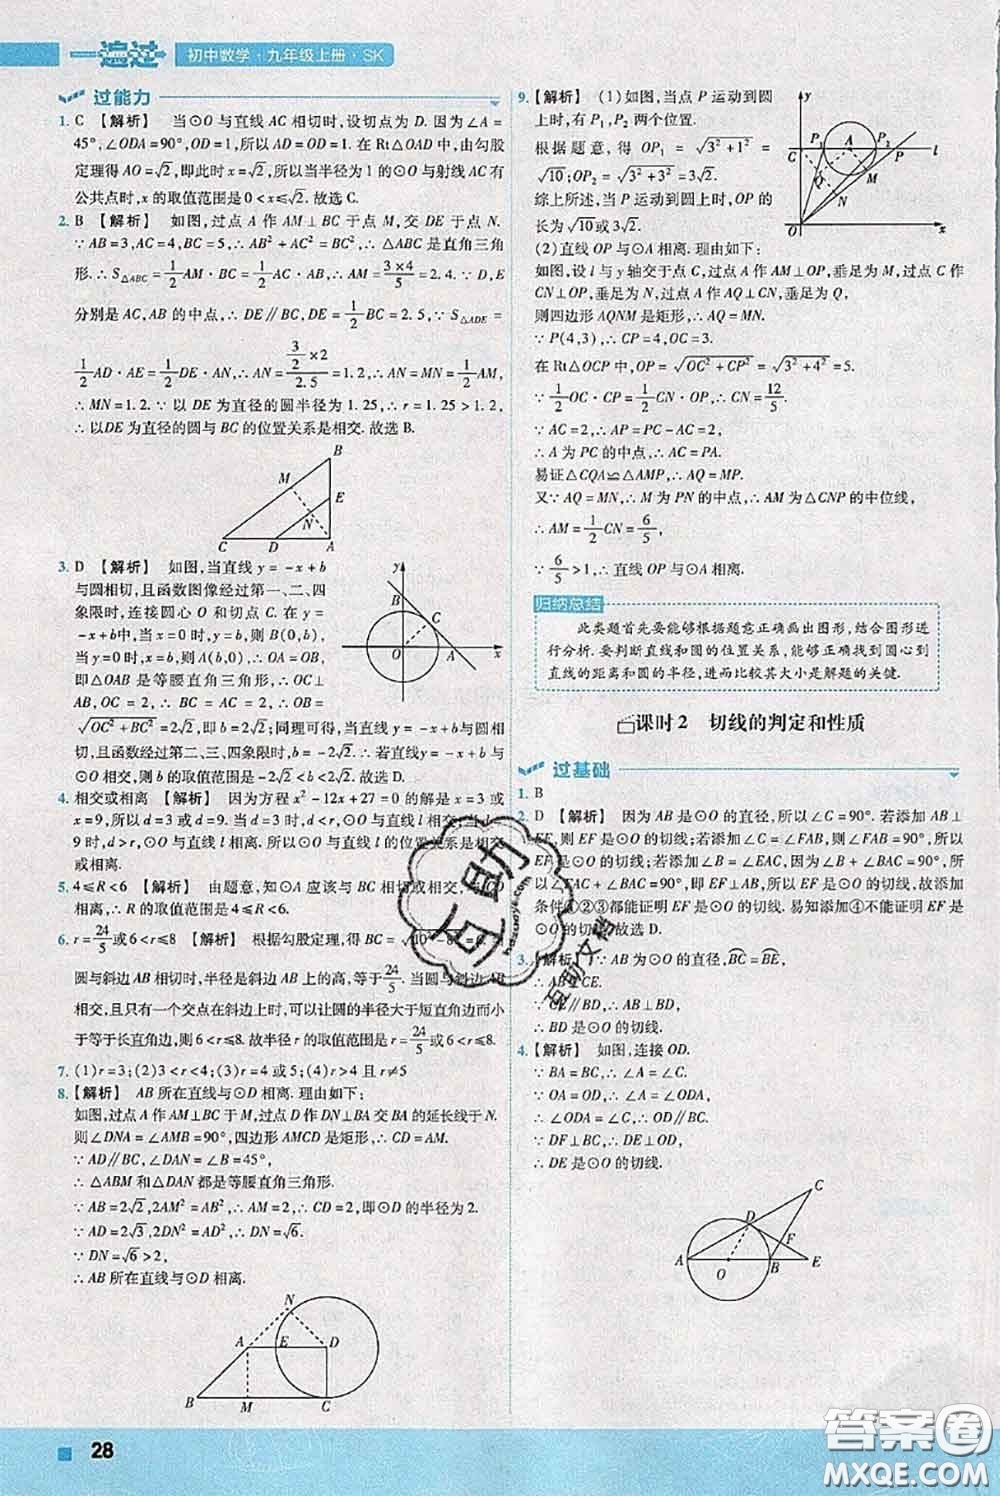 一遍过 初中数学·九年级上册·SK
过能力
1. C 【解析】 当⊙O与直线AC相切时,设切点为D. 因为∠A=
45°,∠ODA=90°,OD=1,所以AD=OD=1. 在Rt△OAD中,由勾股
定理得AO=√2,即此时x=√2,所以当半径为1的⊙O与射线AC有
公共点时,x的取值范围是0<x≤√2. 故选C.
2. B 【解析】 如图,过点A作AM⊥BC于点M,交DE于点N.
∵AB=3,AC=4,BC=5,∴AB²+AC²=BC²,∴△ABC是直角三角
形.∴S△ABC=1/2AM·BC=1/2AB·AC,∴AM=(3×4)/5=2.4. ∵D,E
分别是AC,AB的中点,∴DE∥BC,DE=1/2BC=2.5,∵S△ADE=
1/2AD·AE=1/2DE·AN,∴AN=(3/2×2)/2.5=1.2,∴AN=MN=1/2AM,
∴MN=1.2. ∵以DE为直径的圆半径为1.25,∴r=1.25>1.2,
∴以DE为直径的圆与BC的位置关系是相交. 故选B.
B
M
E
N
C D A
3. D 【解析】 如图,当直线y=-x+b
与圆相切,且函数图像经过第一、二、四
象限时,连接圆心O和切点C. 在y=
-x+b中,当x=0时,y=b,则B(0,b),
当y=0时,x=b,则A(b,0),∴OA=OB,
即△OAB是等腰直角三角形,∴OC=
BC,OC=2,∴BC=OC=2,∴b=OB=
√(OC²+BC²)=2√2,即b=2√2;同理可得,当直线y=-x+b与圆相
切,且函数经过第二、三、四象限时,b=-2√2.∵若直线y=-x+b
与⊙O相交,则b的取值范围是-2√2<b<2√2. 故选D.
y
B
C
O A x
4. 相交或相离 【解析】 因为方程x²-12x+27=0的解是x=3或
x=9,所以d=3或d=9. 当d=3时,d<r,所以直线与⊙O相交;当d=
9时,d>r,所以直线l与⊙O相离. 所以直线l与⊙O的位置关系是相交
或相离.
5. 4≤R<6 【解析】 由题意,知⊙A应该与BC相切或相交,与BD
相离,∴R的取值范围是4≤R<6.
6. r=24/5或6<r≤8 【解析】 根据勾股定理,得BC=√(10²-8²)=6. 当
圆与斜边AB相切时,半径是斜边AB上的高,等于24/5;当圆与斜边AB
相交,且只有一个交点在斜边上时,可以让圆的半径大于短直角边而小
于等于长直角边,则6<r≤8. 故半径r的取值范围是r=24/5或6<r≤8.
7. (1)r=3;(2)3<r<4;(3)r=4或r=5;(4)r>4且r≠5
8. 【解析】 AB所在直线与⊙D相离. 理由如下:
如图,过点A作AM⊥BC于M,过点D作DN⊥BA交BA的延长线于N.
则∠DNA=∠AMB=90°,四边形AMCD是矩形,∴CD=AM.
∵AD∥BC,∴∠DAN=∠B=45°,
∴△ABM和△DAN都是等腰直角三角形.
∵AB=2√2,2AM²=AB²,∴AM=2,∴CD=2,即⊙D的半径为2.
∵AD=2√3,2DN²=AD²,∴DN=√6.
∵DN=√6>2,
∴AB所在直线与⊙D相离.
N
A E D
B M C
9. 【解析】 (1)如图,当点P运动到圆
上时,有P₁,P₂两个位置.
根据题意,得OP₁=√(3²+1²)=
√10;OP₂=√(3²+3²)=3√2.
综上所述,当点P运动到圆上时,线段OP的
长为√10或3√2.
(2)直线OP与⊙A相离. 理由如下:
如图,设l与y轴交于点C,过点A作AM⊥OP,垂足为M,过点C作
CN⊥OP,垂足为N,过点A作AQ⊥CN,垂足为Q,
则四边形AQNM是矩形,∴AQ=MN.
∵P(4,3),∴CP=4,OC=3.
在Rt△OCP中,OP=√(OC²+CP²)=√(3²+4²)=5.
∵1/2OC·CP=1/2CN·OP,∴CN=12/5.
∵AC=2,∴AP=PC-AC=2,
∴A为PC的中点,∴AC=PA.
易证△CQA≌△AMP,∴AQ=MP.
又∵AQ=MN,∴M为PN的中点,∴AM为△CNP的中位线,
∴AM=1/2CN=6/5,
∵6/5>1,∴直线OP与⊙A相离.
y
C P₁ A P₂ P l
Q M
N
O x
归纳总结
此类题首先要能够根据题意正确画出图形,结合图形进
行分析. 要判断直线和圆的位置关系,能够正确找出圆心到
直线的距离和圆的半径,进而比较其大小是解题的关键.
课时2 切线的判定和性质
过基础
1. B
2. D 【解析】 因为AB是⊙O的直径,所以∠C=90°. 若添加AB⊥
EF,则EF是⊙O的切线;若添加∠C=∠FAB,则∠FAB=90°,所以
EF是⊙O的切线;若添加∠B=∠EAC,因为∠B+∠BAC=90°,所以
∠EAC+∠BAC=90°,即EF是⊙O的切线,所以添加
条件①②③都能证明EF是⊙O的切线. 易知添加④不能证明EF是
⊙O的切线. 故选D.
3. 【解析】∵AB为⊙O的直径,BC=BE,
∴AB⊥CE.
∵CE∥BD,∴AB⊥BD,
∴BD是⊙O的切线.
4. 【解析】 如图,连接OD.
∵BA=BC,∴∠A=∠C.
∵OA=OD,∴∠A=∠ODA,
∴∠ODA=∠C,∴OD∥BC.
∵DF⊥BC,∴DE⊥OD,
∴DE是⊙O的切线.
C
D
F
A O B E
28
互助
互助文档
答案圈
MXQE.COM